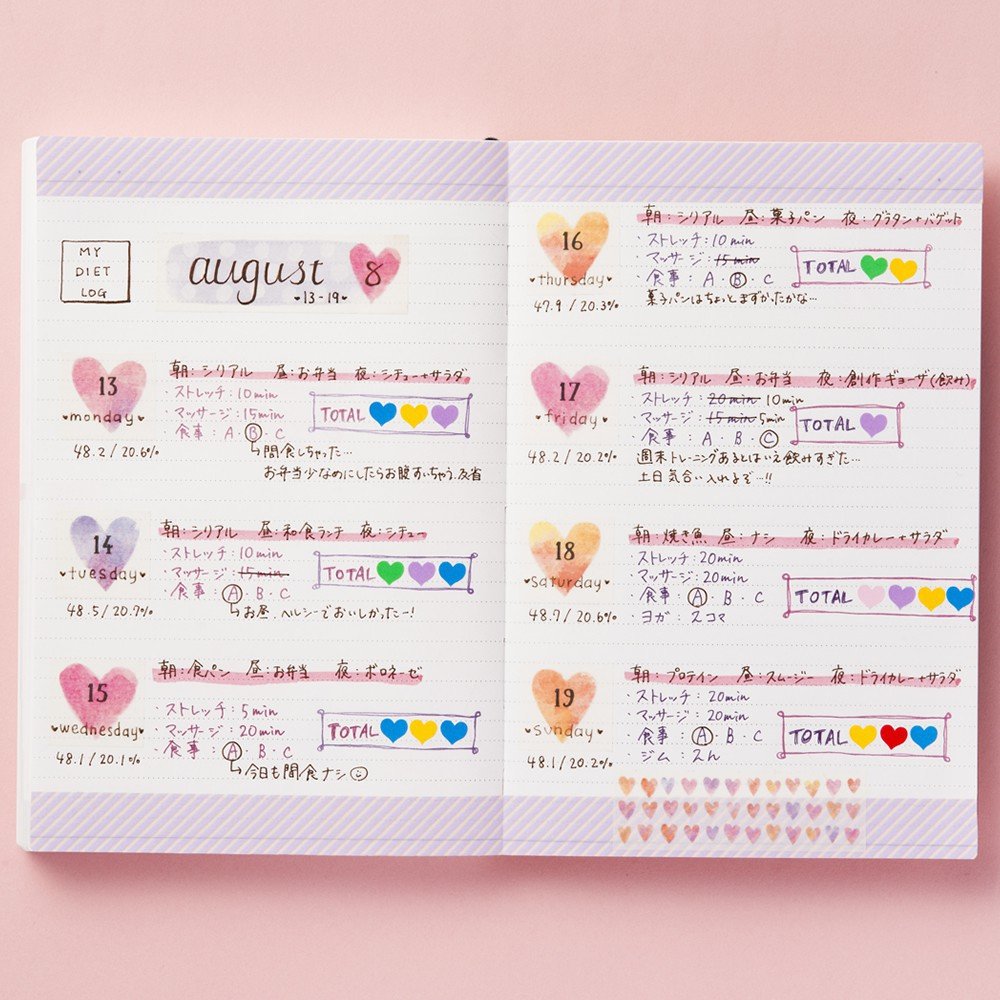 MY
DIET
LOG
august 8
13-19
13
monday
48.2 / 20.6%
朝:シリアル 昼:お弁当 夜:シチュー+サラダ
・ストレッチ:10min
・マッサージ:15min
・食事:A・B・C
TOTAL
↳間食しちゃった…
お弁当少なめにしたらお腹すいちゃう。反省
14
tuesday
48.5 / 20.7%
朝:シリアル 昼:和食ランチ 夜:シチュー
・ストレッチ:10min
・マッサージ:15min
・食事:A・B・C
TOTAL
↳お昼、ヘルシーでおいしかったー!
15
wednesday
48.1 / 20.1%
朝:食パン 昼:お弁当 夜:ボロネーゼ
・ストレッチ:5min
・マッサージ:20min
・食事:A・B・C
TOTAL
↳今日も間食ナシ
16
thursday
47.9 / 20.3%
朝:シリアル 昼:菓子パン 夜:グラタン+バゲット
・ストレッチ:10min
・マッサージ:15min
・食事:A・B・C
TOTAL
菓子パンはちょっとまずかったかな…
17
friday
48.2 / 20.2%
朝:シリアル 昼:お弁当 夜:創作ギョーザ(飲み)
・ストレッチ:20min 10min
・マッサージ:15min 5min
・食事:A・B・C
TOTAL
週末トレーニングあるとはいえ飲みすぎた…
土日気合い入れるぞ…!!
18
saturday
48.7 / 20.6%
朝:焼き魚 昼:ナシ 夜:ドライカレー+サラダ
・ストレッチ:20min
・マッサージ:20min
・食事:A・B・C
・ヨガ:スコマ
TOTAL
19
sunday
48.1 / 20.2%
朝:プロテイン 昼:スムージー 夜:ドライカレー+サラダ
・ストレッチ:20min
・マッサージ:20min
・食事:A・B・C
・ジム:
TOTAL